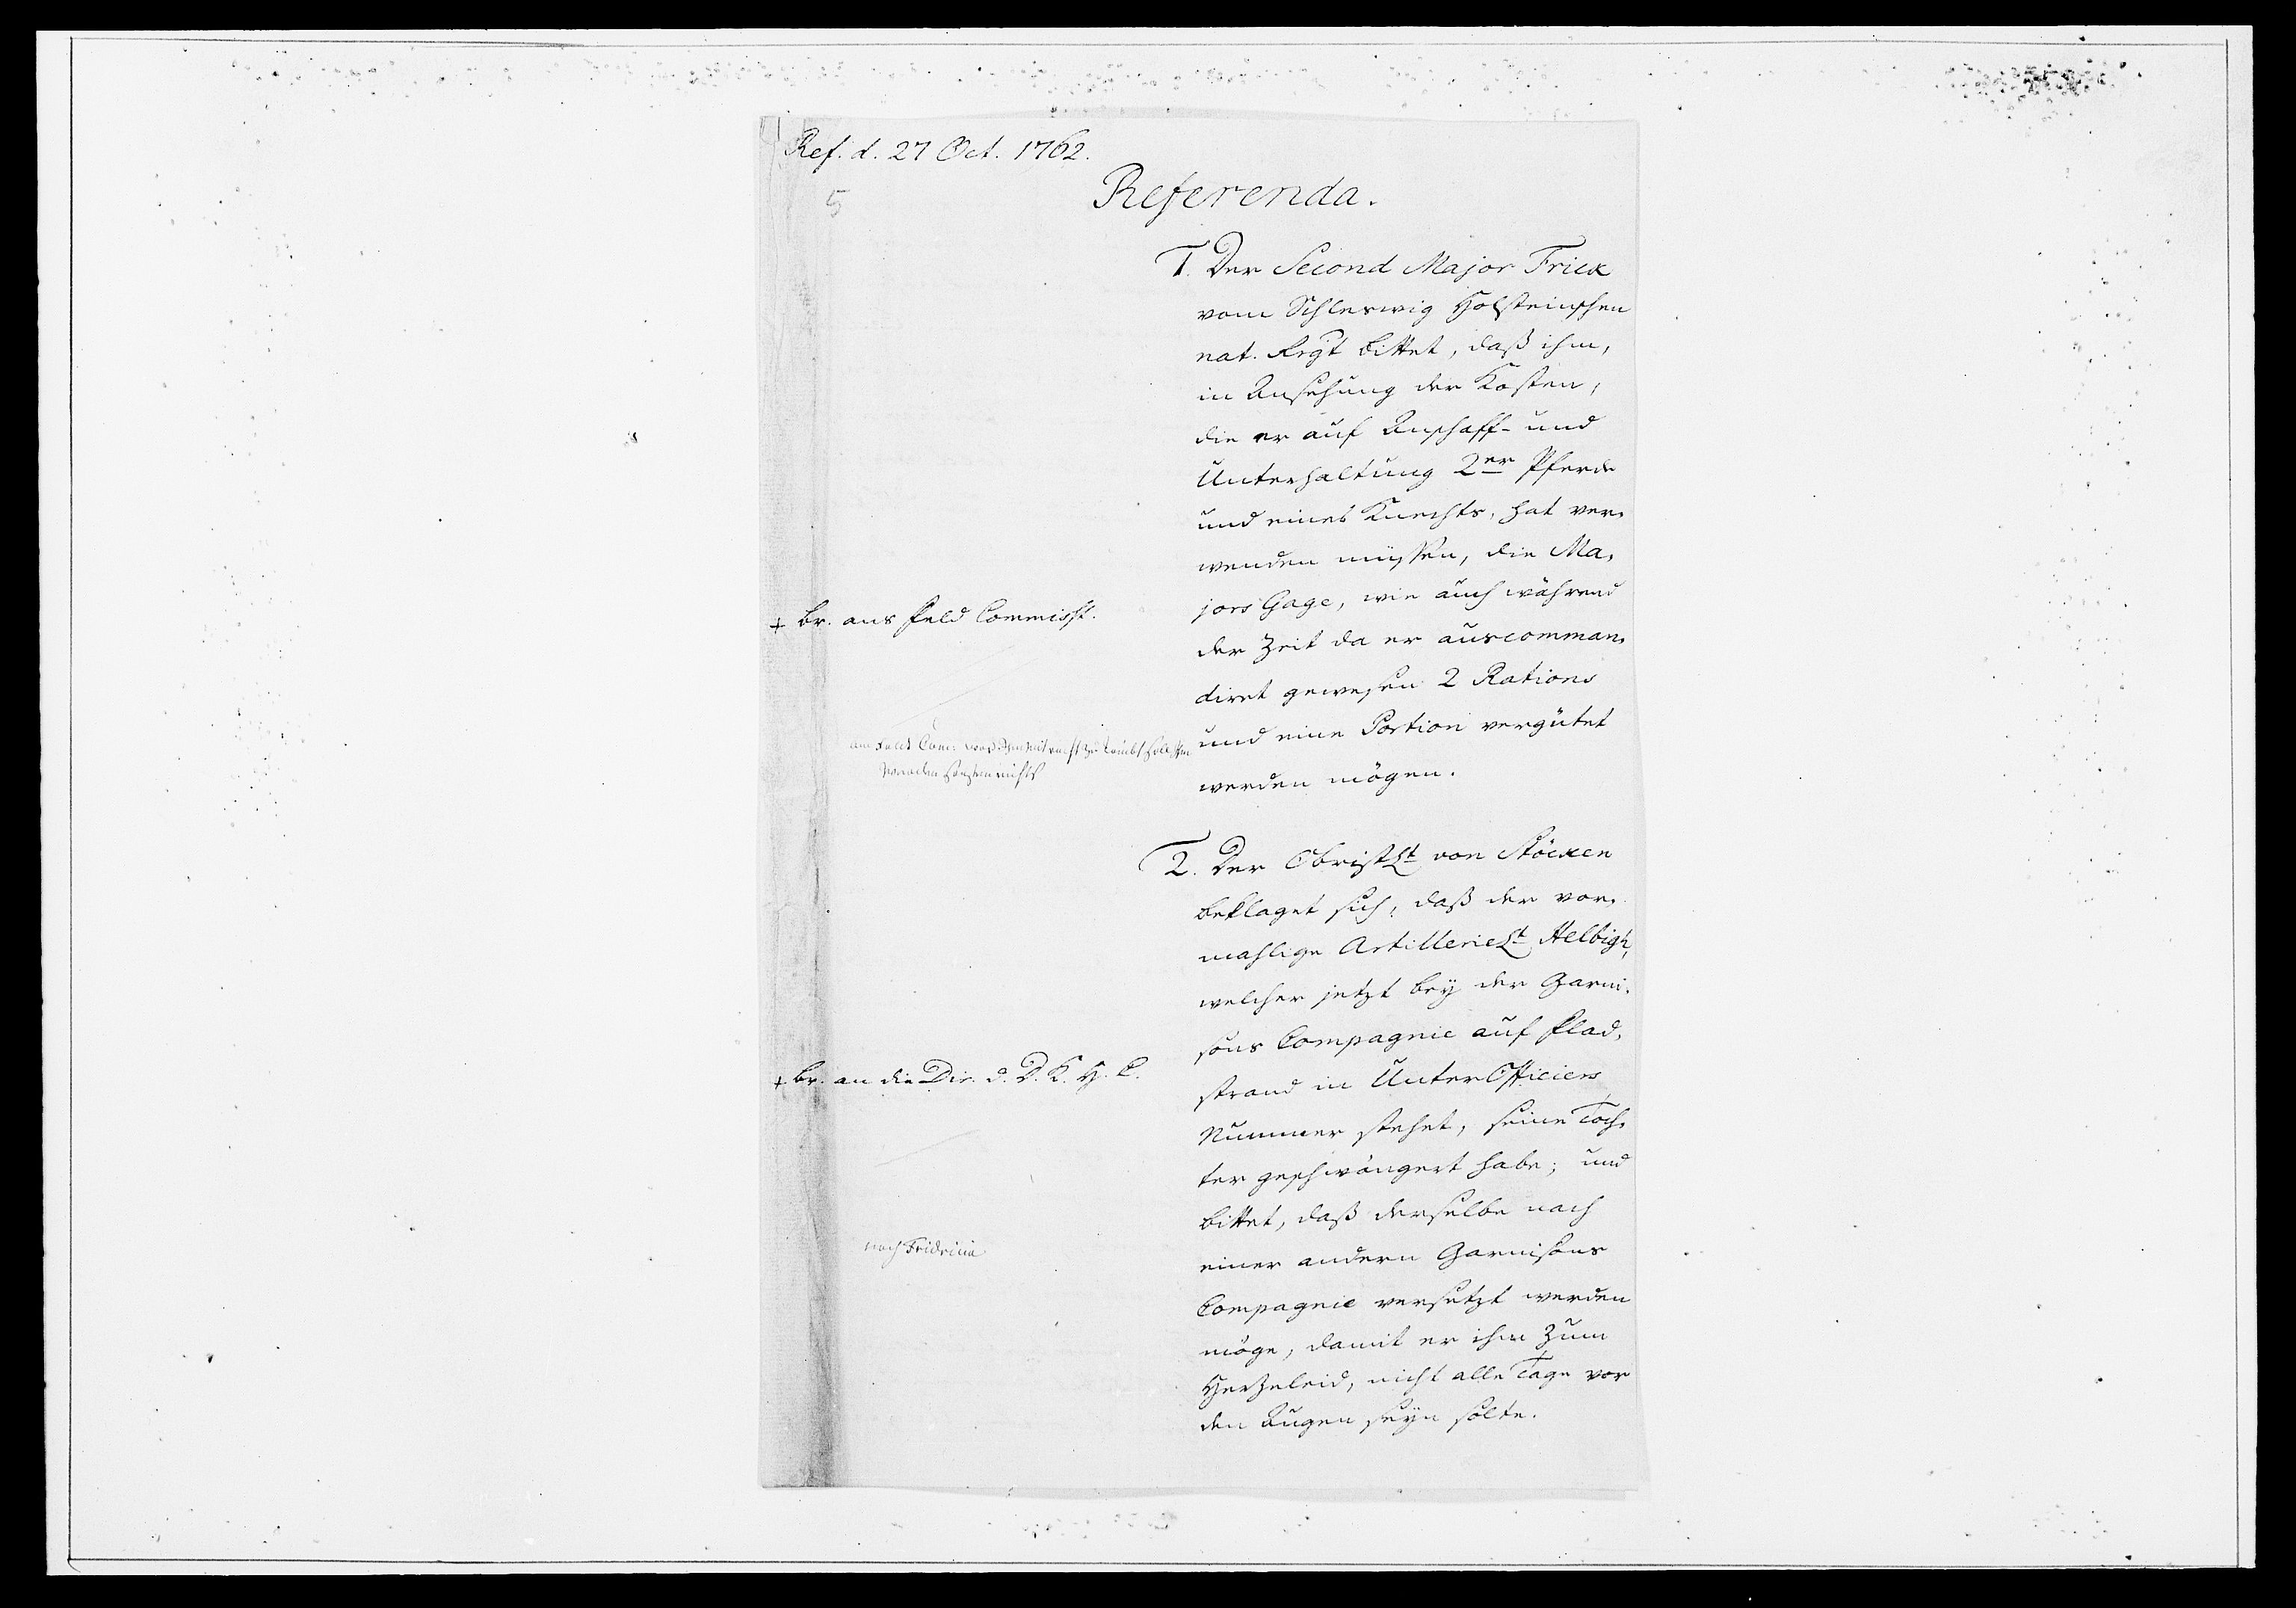 Ref. d. 27 Oct. 1762.
5
Referenda.
1. Der Second Major Frick
vom Schleswig Holsteinschen
nat. Regt bittet, daß ihm,
in Ansehung der Kosten,
die er auf Anschaff- und
Unterhaltung 2er Pferde
und eines Knechts, hat ver-
wenden müssen, die Ma-
jors Gage, wie auch während
der Zeit da er auscomman-
dirt gewesen 2 Rations
und eine Portion vergütet
werden mögen.
+ Br. ans Feld Commisst.
am Feld Com:
nichts
2. Der ObristLt von Stöcken
beklaget sich, daß der vor-
mahlige ArtillerieLt Helbigk,
welcher jetzt bey der Garni-
sons Compagnie auf Flad-
strand in UnterOfficiers
Nummer stehet, seine Toch-
ter geschwängert habe; und
bittet, daß derselbe nach
einer andern Garnisons
Compagnie versetzt werden
möge, damit er ihm zum
Herzeleid, nicht alle Tage vor
den Augen seyn solte.
+ Br. an die Dir. d. D. K. H. C.
nach Fridricia